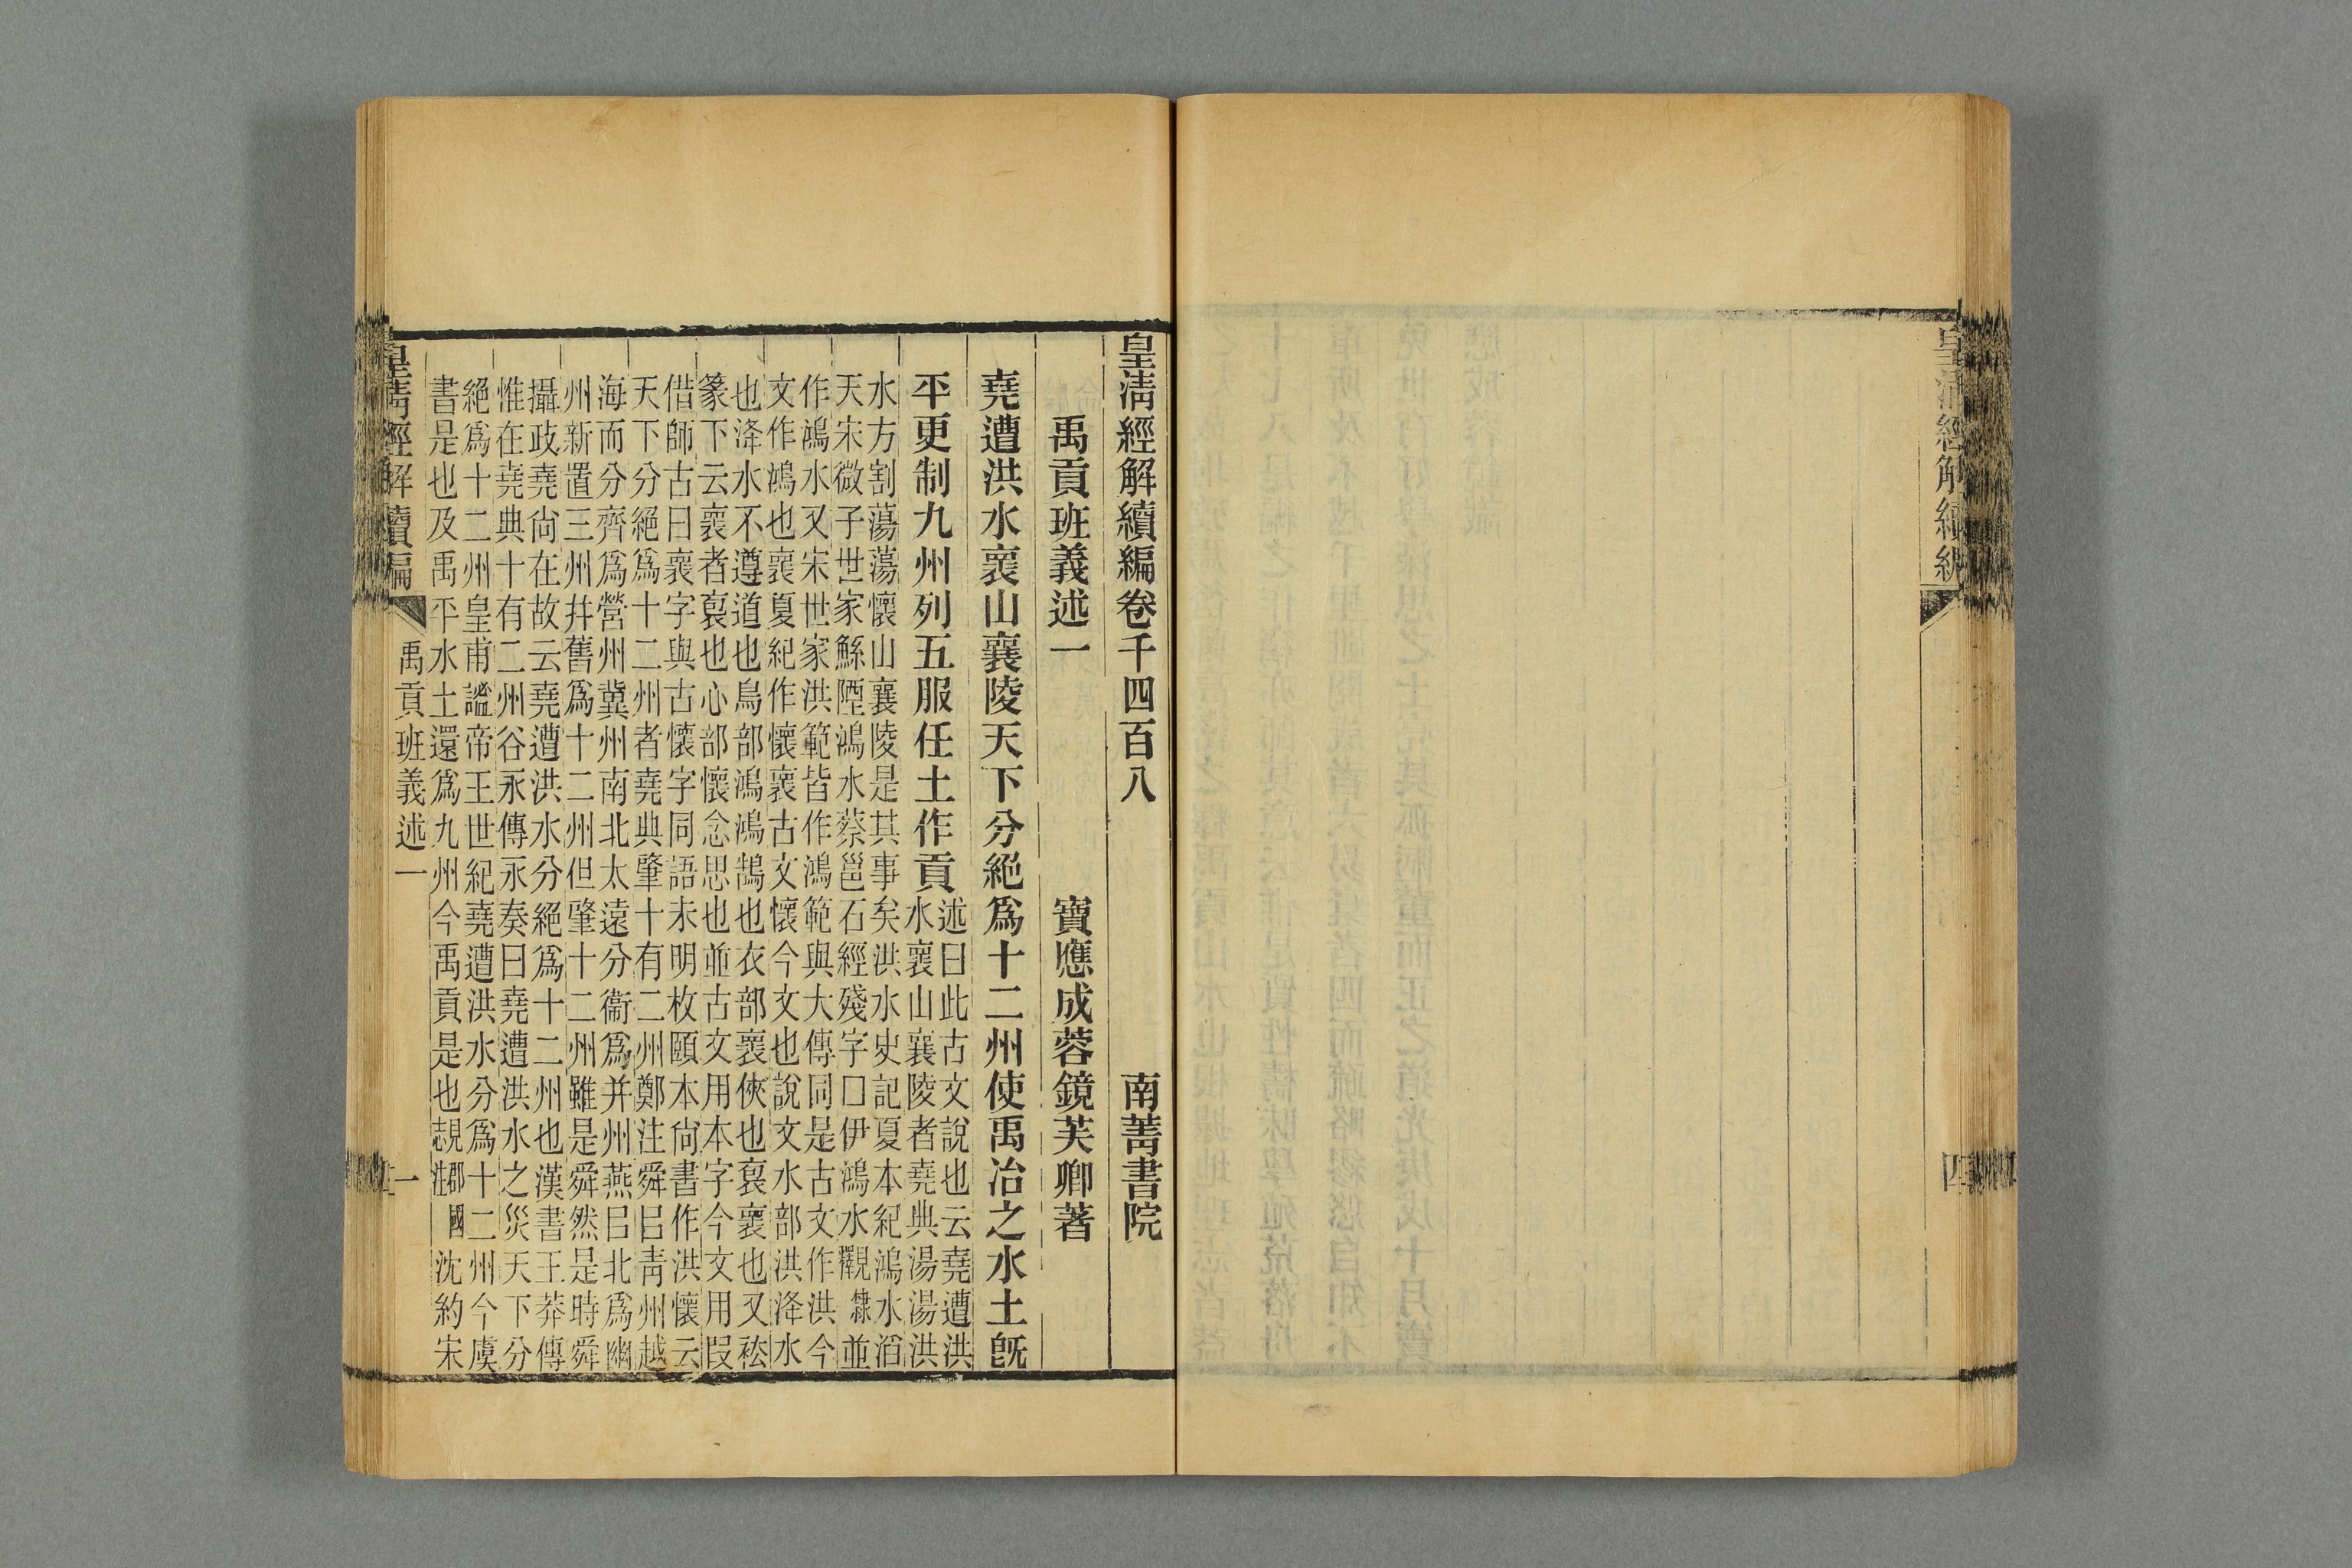 皇清經解續編卷千四百八　南菁書院
禹貢班義述一　寶應成蓉鏡芙卿著
堯遭洪水襄山襄陵天下分絕爲十二州使禹治之水土旣
平更制九州列五服任土作貢
述曰此古文說也云堯遭洪
水襄山襄陵者堯典湯湯洪
水方割蕩蕩懷山襄陵是其事矣洪水史記夏本紀鴻水滔
天宋微子世家鯀陻鴻水蔡邕石經殘字囗伊鴻水觀隸並
作鴻水又宋世家洪範皆作鴻範與大傳同是古文作洪今
文作鴻也襄夏紀作懷襄古文懷今文也說文水部洪洚水
也洚水不遵道也鳥部鴻鴻鵠也衣部褱俠也裹褱也又䘕
篆下云褱者裹也心部懷念思也並古文用本字今文用叚
借師古曰褱字與古懷字同語未明枚頤本尙書作洪懷云
天下分絕爲十二州者堯典肇十有二州鄭注舜㠯靑州越
海而分齊爲營州冀州南北太遠分衞爲并州燕㠯北爲幽
州新置三州并舊爲十二州但肇十二州雖是舜然是時舜
攝政堯尙在故云堯遭洪水分絕爲十二州也漢書王莽傳
惟在堯典十有二州谷永傳永奏曰堯遭洪水之災天下分
絕爲十二州皇甫謐帝王世紀堯遭洪水分爲十二州今虞
書是也及禹平水土還爲九州今禹貢是也覟郡國注沈約宋
皇清經解續編　禹貢班義述一　一
皇清經解續編　四